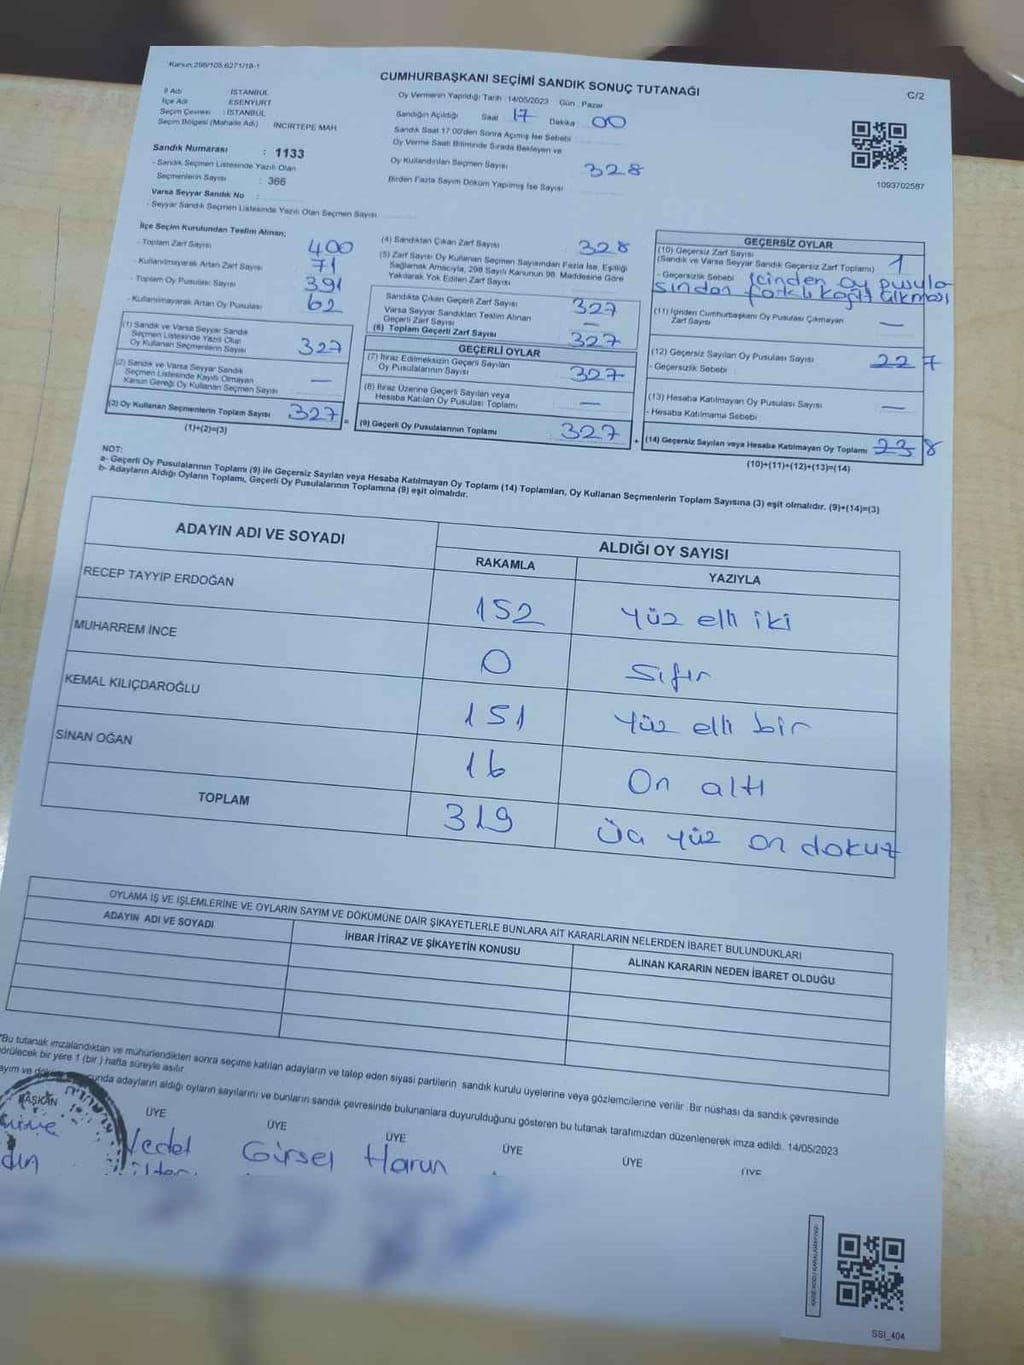 Kanun:298/105,6271/18-1
CUMHURBAŞKANI SEÇİMİ SANDIK SONUÇ TUTANAĞI
C/2
İl Adı : İSTANBUL
İlçe Adı : ESENYURT
Seçim Çevresi : İSTANBUL
Seçim Bölgesi (Mahalle Adı) : İNCİRTEPE MAH
Sandık Numarası : 1133
- Sandık Seçmen Listesinde Yazılı Olan
Seçmenlerin Sayısı : 366
Varsa Seyyar Sandık No :
- Seyyar Sandık Listesinde Yazılı Olan Seçmen Sayısı
Oy Vermenin Yapıldığı Tarih : 14/05/2023 Gün : Pazar
Sandığın Açıldığı Saat 17 Dakika 00
Sandık Saat 17.00'den Sonra Açımış İse Sebebi
Oy Verme Saati Bitiminde Sırada Bekleyen ve
Oy Kullandırılan Seçmen Sayısı 328
Birden Fazla Sayım Döküm Yapılmış İse Sayısı
1093702587
İlçe Seçim Kurulundan Teslim Alınan;
- Toplam Zarf Sayısı 400
- Kullanılmayarak Artan Zarf Sayısı 71
- Toplam Oy Pusulası Sayısı 391
- Kullanılmayarak Artan Oy Pusulası 62
(1) Sandık ve Varsa Seyyar Sandık
Seçmen Listesinde Yazılı Olup
Oy Kullanan Seçmenlerin Sayısı 327
(2) Sandık ve Varsa Seyyar Sandık
Seçmen Listesinde Kayıtlı Olmayan
Kanun Gereği Oy Kullanan Seçmen Sayısı —
(3) Oy Kullanan Seçmenlerin Toplam Sayısı 327 =
(1)+(2)=(3)
(4) Sandıktan Çıkan Zarf Sayısı 328
(5) Zarf Sayısı Oy Kullanan Seçmen Sayısından Fazla İse, Eşitliği
Sağlamak Amacıyla, 298 Sayılı Kanunun 98. Maddesine Göre
Yakılarak Yok Edilen Zarf Sayısı
Sandıkta Çıkan Geçerli Zarf Sayısı 327
Varsa Seyyar Sandıktan Teslim Alınan
Geçerli Zarf Sayısı —
(6) Toplam Geçerli Zarf Sayısı 327
GEÇERLİ OYLAR
(7) İtiraz Edilmeksizin Geçerli Sayılan
Oy Pusulalarının Sayısı 327
(8) İtiraz Üzerine Geçerli Sayılan veya
Hesaba Katılan Oy Pusulası Toplamı —
(9) Geçerli Oy Pusulalarının Toplamı 327 +
GEÇERSİZ OYLAR
(10) Geçersiz Zarf Sayısı
(Sandık ve Varsa Seyyar Sandık Geçersiz Zarf Toplamı) 1
- Geçersizlik Sebebi İçinden oy pusula
sından farklı kağıt çıkması
(11) İçinden Cumhurbaşkanı Oy Pusulası Çıkmayan
Zarf Sayısı —
(12) Geçersiz Sayılan Oy Pusulası Sayısı 227
- Geçersizlik Sebebi
(13) Hesaba Katılmayan Oy Pusulası Sayısı —
- Hesaba Katılmama Sebebi
(14) Geçersiz Sayılan veya Hesaba Katılmayan Oy Toplamı 238
(10)+(11)+(12)+(13)=(14)
NOT:
a- Geçerli Oy Pusulalarının Toplamı (9) ile Geçersiz Sayılan veya Hesaba Katılmayan Oy Toplamı (14) Toplamları, Oy Kullanan Seçmenlerin Toplam Sayısına (3) eşit olmalıdır. (9)+(14)=(3)
b- Adayların Aldığı Oyların Toplamı, Geçerli Oy Pusulalarının Toplamına (9) eşit olmalıdır.
ADAYIN ADI VE SOYADI ALDIĞI OY SAYISI
RAKAMLA YAZIYLA
RECEP TAYYİP ERDOĞAN 152 Yüz elli iki
MUHARREM İNCE 0 Sıfır
KEMAL KILIÇDAROĞLU 151 Yüz elli bir
SİNAN OĞAN 16 On altı
TOPLAM 319 Üç yüz on dokuz
OYLAMA İŞ VE İŞLEMLERİNE VE OYLARIN SAYIM VE DÖKÜMÜNE DAİR ŞİKAYETLERLE BUNLARA AİT KARARLARIN NELERDEN İBARET BULUNDUKLARI
ADAYIN ADI VE SOYADI İHBAR İTİRAZ VE ŞİKAYETİN KONUSU ALINAN KARARIN NEDEN İBARET OLDUĞU
*Bu tutanak imzalandıktan ve mühürlendikten sonra seçime katılan adayların ve talep eden siyasi partilerin sandık kurulu üyelerine veya gözlemcilerine verilir. Bir nüshası da sandık çevresinde
görülecek bir yere 1 (bir) hafta süreyle asılır
unda adayların aldığı oyların sayılarını ve bunların sandık çevresinde bulunanlara duyurulduğunu gösteren bu tutanak tarafımızdan düzenlenerek imza edildi. 14/05/2023
BAŞKAN ÜYE ÜYE ÜYE ÜYE ÜYE ÜYE
Vedat Gürsel Harun
SSI_404